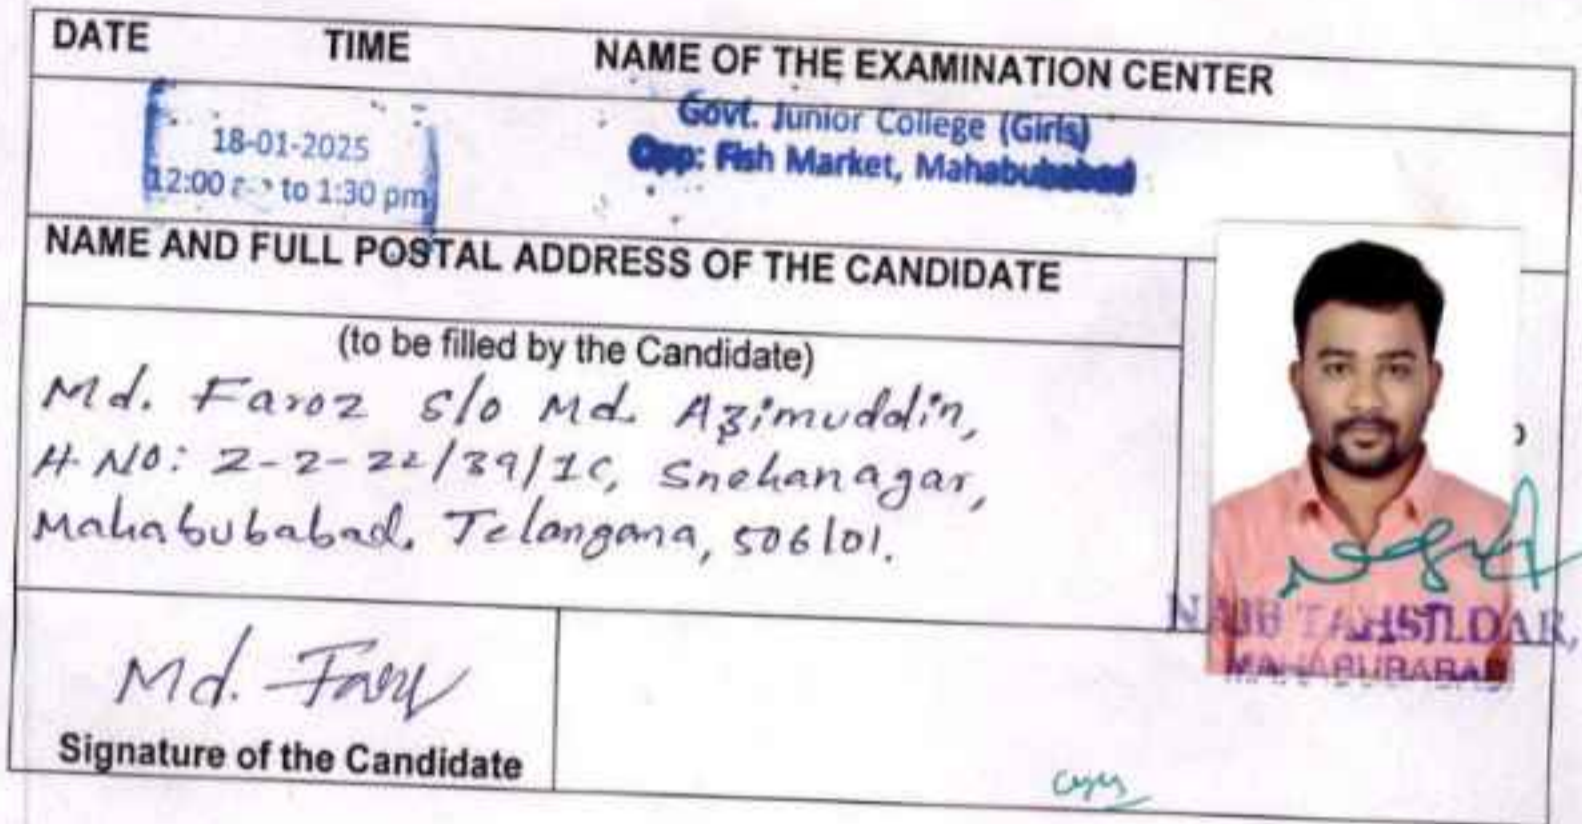 DATE TIME NAME OF THE EXAMINATION CENTER
18-01-2025
12:00 to 1:30 pm
Govt. Junior College (Girls)
Opp: Fish Market, Mahabubabad
NAME AND FULL POSTAL ADDRESS OF THE CANDIDATE
(to be filled by the Candidate)
Md. Faroz S/o Md. Azimuddin,
H.NO: 2-2-22/39/1C, Snehanagar,
Mahabubabad, Telangana, 506101.
NAIB TAHSILDAR,
MAHABUBABAD
Md.
Signature of the Candidate